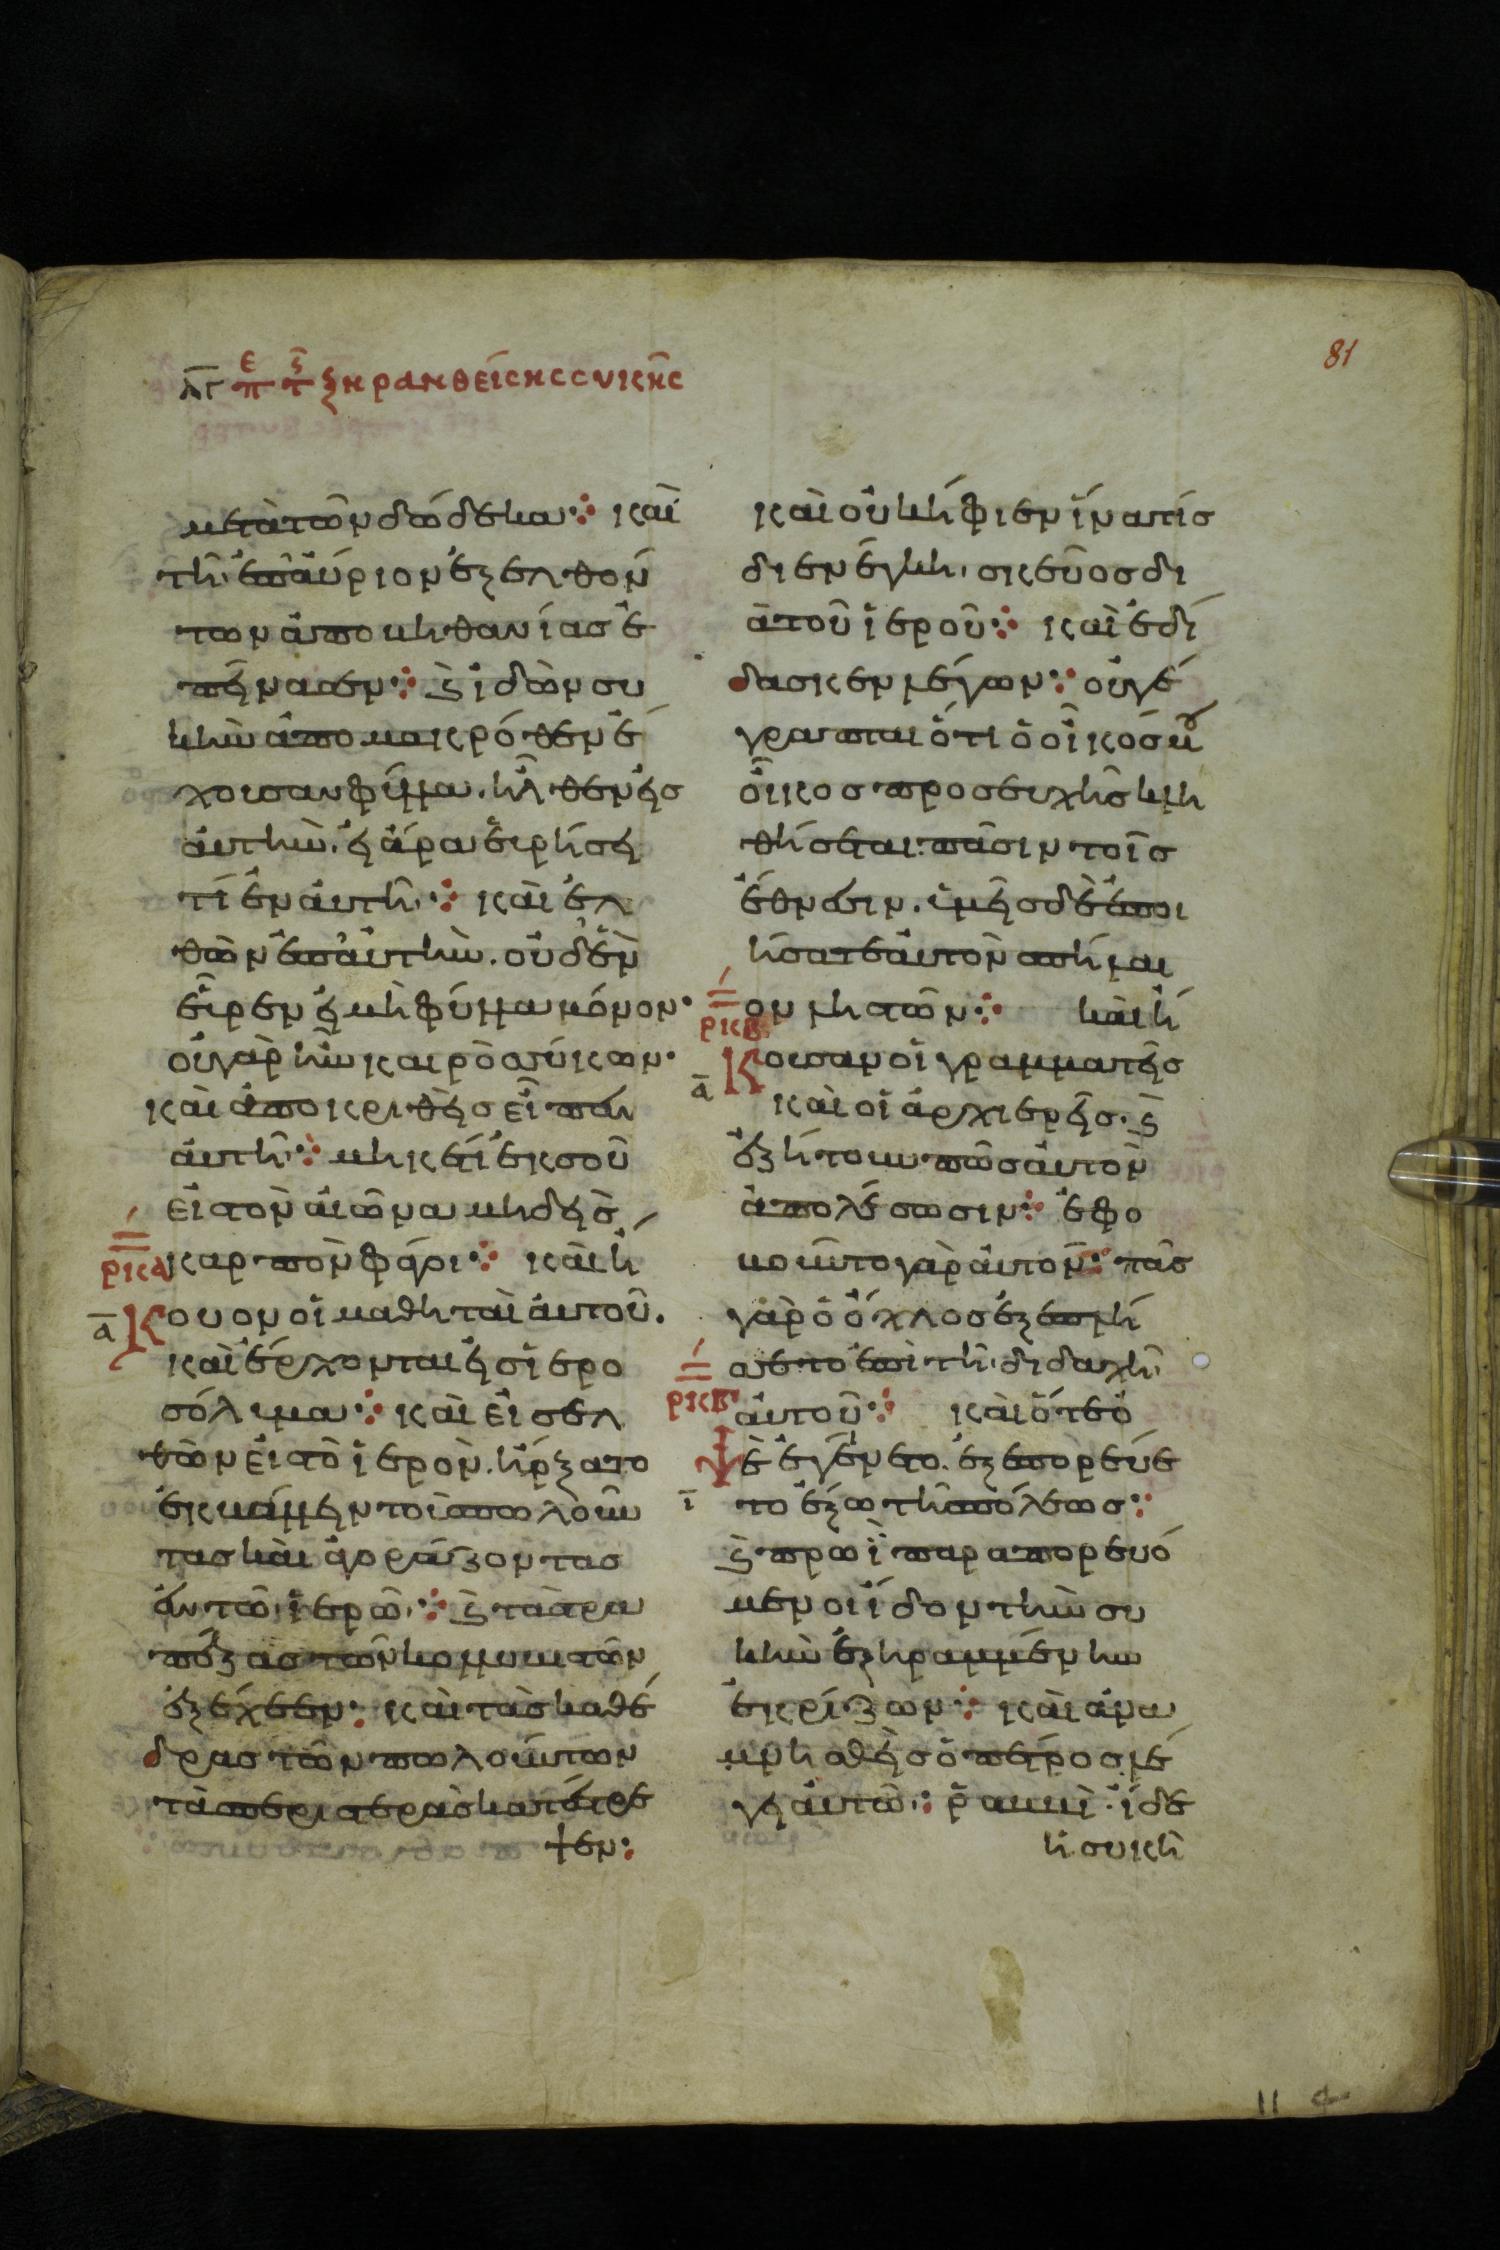 81
λγ πε τς ξηρανθείσης συκῆς
μετὰ τῶν δώδεκα· καὶ
τῆ ἐπἀύριον ἐξελθόν
των ἀπο βηθανίασ ἐ
πείνασεν· ϛ ἰδὼν συ
κὴν ἀπο μακρόθεν ἔ
χουσαν φύλλα. ἦλθεν εἰσ
ἀυτὴν. εἰ ἄρα ἑυρήσει
τί ἐν ἀυτῆ· καὶ ἐλ
θὼν ἐπἀυτὴν. οὐδὲν
εὗρεν εἰ μὴ φύλλα μόνον·
οὐ γὰρ ἦν καιρὸσ σύκων·
καὶ ἀποκριθεὶσ εἶπεν
ἀυτῆ· μηκέτί ἐκ σοῦ
εἰσ τὸν ἀιῶνα μηδεὶσ
ρκα
καρπὸν φάγοι· καὶ ἤ
α
Κουον οἱ μαθηταὶ ἀυτοῦ.
καὶ ἔρχονται εἰσ ἱερο
σόλυμα· καὶ εἰσελ
θὼν εἰσ τὸ ἱερὸν. ἤρξατο
ἐκβάλλειν τοὺσ πωλοῦν
τασ καὶ ἀγοράζοντασ
ἐν τῶ ἱερῶ· ϛ τὰσ τρα
πέζασ τῶν κολλυβιστῶν
ἐξέχεεν· καὶ τὰσ καθέ
δρασ τῶν πωλούντων
τὰσ περιστερὰσ κατέστρε
ψεν:
καὶ οὐκ ἤφιεν ἵνα τίσ
διενέγκη σκεῦοσ δι
ὰ τοῦ ἱεροῦ· καὶ ἐδί
δασκεν λέγων· οὐ γέ
γραπται ὅτι ὁ οἶκόσ μου
οἶκοσ προσευχῆσ κλη
θήσεται πᾶσιν τοῖσ
ἔθνεσιν. ὑμεῖσ δὲ ἐποι
ήσατε ἀυτὸν σπήλαι
ον ληστῶν· καὶ ἤ
ρκβ
α
Κουσαν οἱ γραμματεῖσ
καὶ οἱ ἀρχιερεῖσ· ϛ
ἐζήτουν πῶσ ἀυτὸν
ἀπολέσωσιν· ἐφο
βοῦντο γὰρ ἀυτον· πᾶσ
γὰρ ὁ ὄχλοσ ἐξεπλή
σσετο ἐπὶ τῆ διδαχῆ
ρκγ
ἀυτοῦ· καὶ ὅτε ὀ
ι
Ψὲ ἐγένετο. ἐξεπορεύε
το ἔξω τῆσ πόλεωσ·
ϛ πρωῒ παραπορευό
μενοι ἴδον τὴν συ
κὴν ἐξηραμμένην
ἐκ ριζων· καὶ ἀνα
μνησθεὶσ ὁ πέτροσ λέ
γει ἀυτῶ· ῥαββὶ ἴδε
ἡ συκῆ